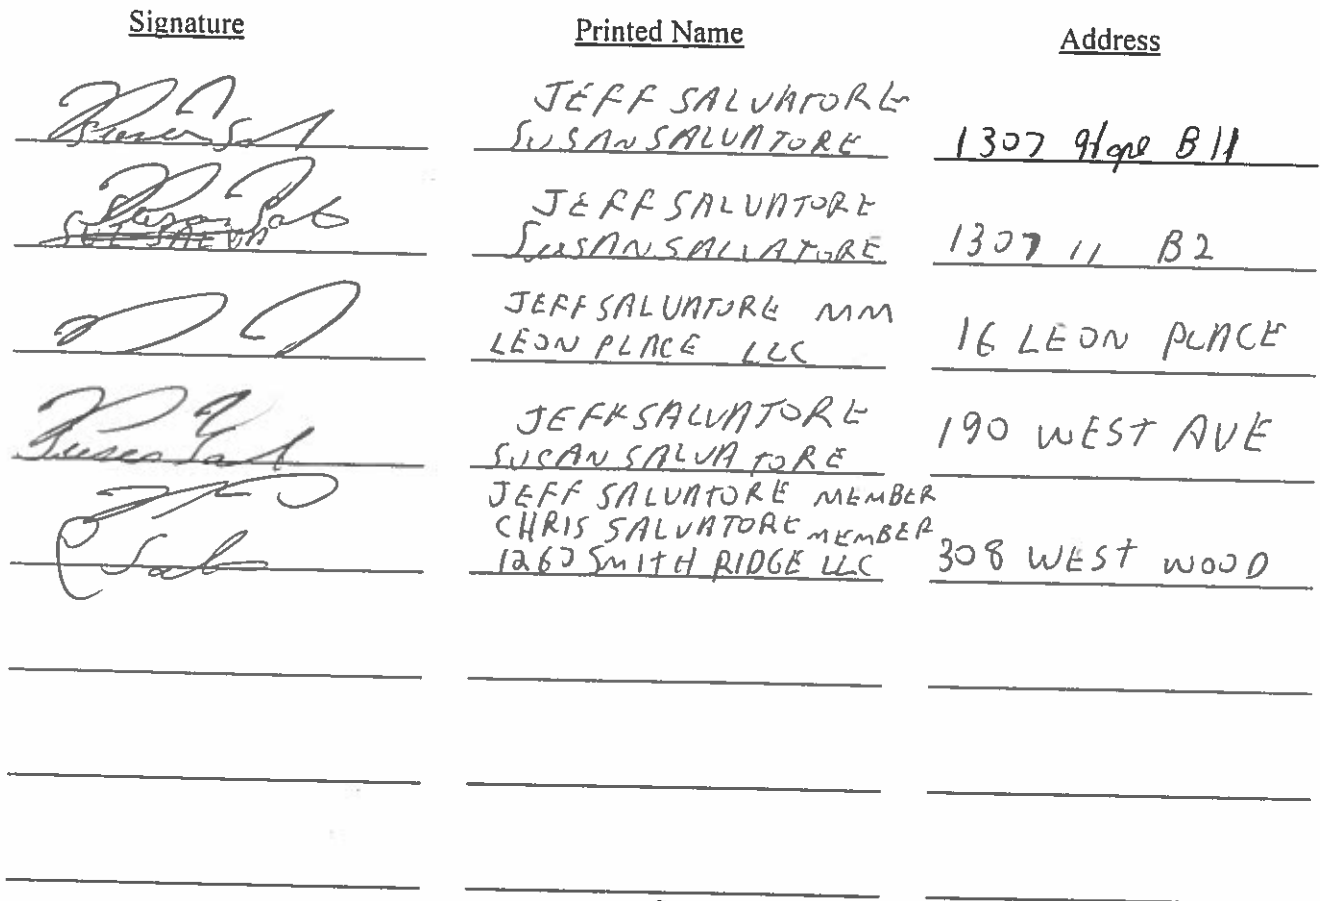 Signature Printed Name Address
JEFF SALVATORE
SUSAN SALVATORE 1307 Hope B11
JEFF SALVATORE
SUSAN SALVATORE 1307 11 B2
SUE SALVA
JEFF SALVATORE MM
LEON PLACE LLC 16 LEON PLACE
JEFF SALVATORE 190 WEST AVE
SUSAN SALVATORE
JEFF SALVATORE MEMBER
CHRIS SALVATORE MEMBER
1260 SMITH RIDGE LLC 308 WEST WOOD